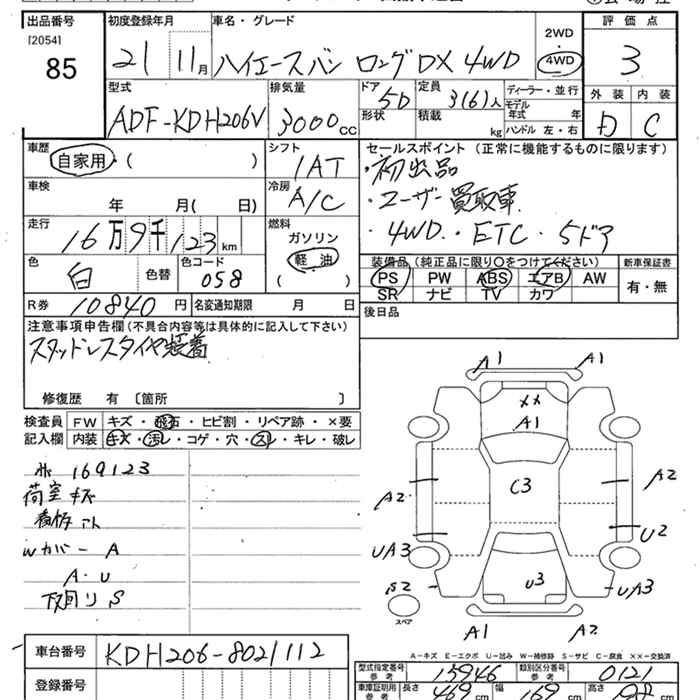 出品番号 初度登録年月 車名・グレード 2WD 評価点
[2054]
85 21 11月 ハイエースバン ロングDX 4WD 4WD 3
型式 排気量 ドア 定員 ディーラー・並行 外装 内装
ADF-KDH206V 3000cc 5D 3(6)人 モデル年式 年
形状 積載 kg ハンドル 左・右 D C
車歴 シフト セールスポイント (正常に機能するものに限ります)
自家用・( ) IAT ・初出品
車検 冷房 ・ユーザー買取車
年 月( 日) A/C ・4WD・ETC・5ドア
走行 燃料
16万9千123km ガソリン
軽油
( )
色 色替 色コード 装備品(純正品に限り○をつけてください) 新車保証書
白 058 PS PW ABS エアB AW 有・無
SR ナビ TV カワ
R券 10840円 名変通知期限 月 日 後日品
注意事項申告欄(不具合内容等は具体的に記入して下さい)
スタッドレスタイヤ装着
修復歴 有 〔箇所 〕
検査員 FW キズ・飛石・ヒビ割・リペア跡・×要
記入欄 内装 キズ・汚レ・コゲ・穴・スレ・キレ・破レ
169123
荷室キズ
Wカバー A
A・U
下回りS
A1 A1
××
A1
A2 C3 A2
U2
UA3
S2 U3 UA3
スペア
A1 A2
A-キズ E-エクボ U-凹み W-補修跡 S-サビ C-腐食 ××-交換済
車台番号 KDH206-8021112
型式指定番号 参考 15946 類別区分番号 参考 0121
登録番号 車庫証明用 参考 長さ 469cm 幅 169cm 高さ cm